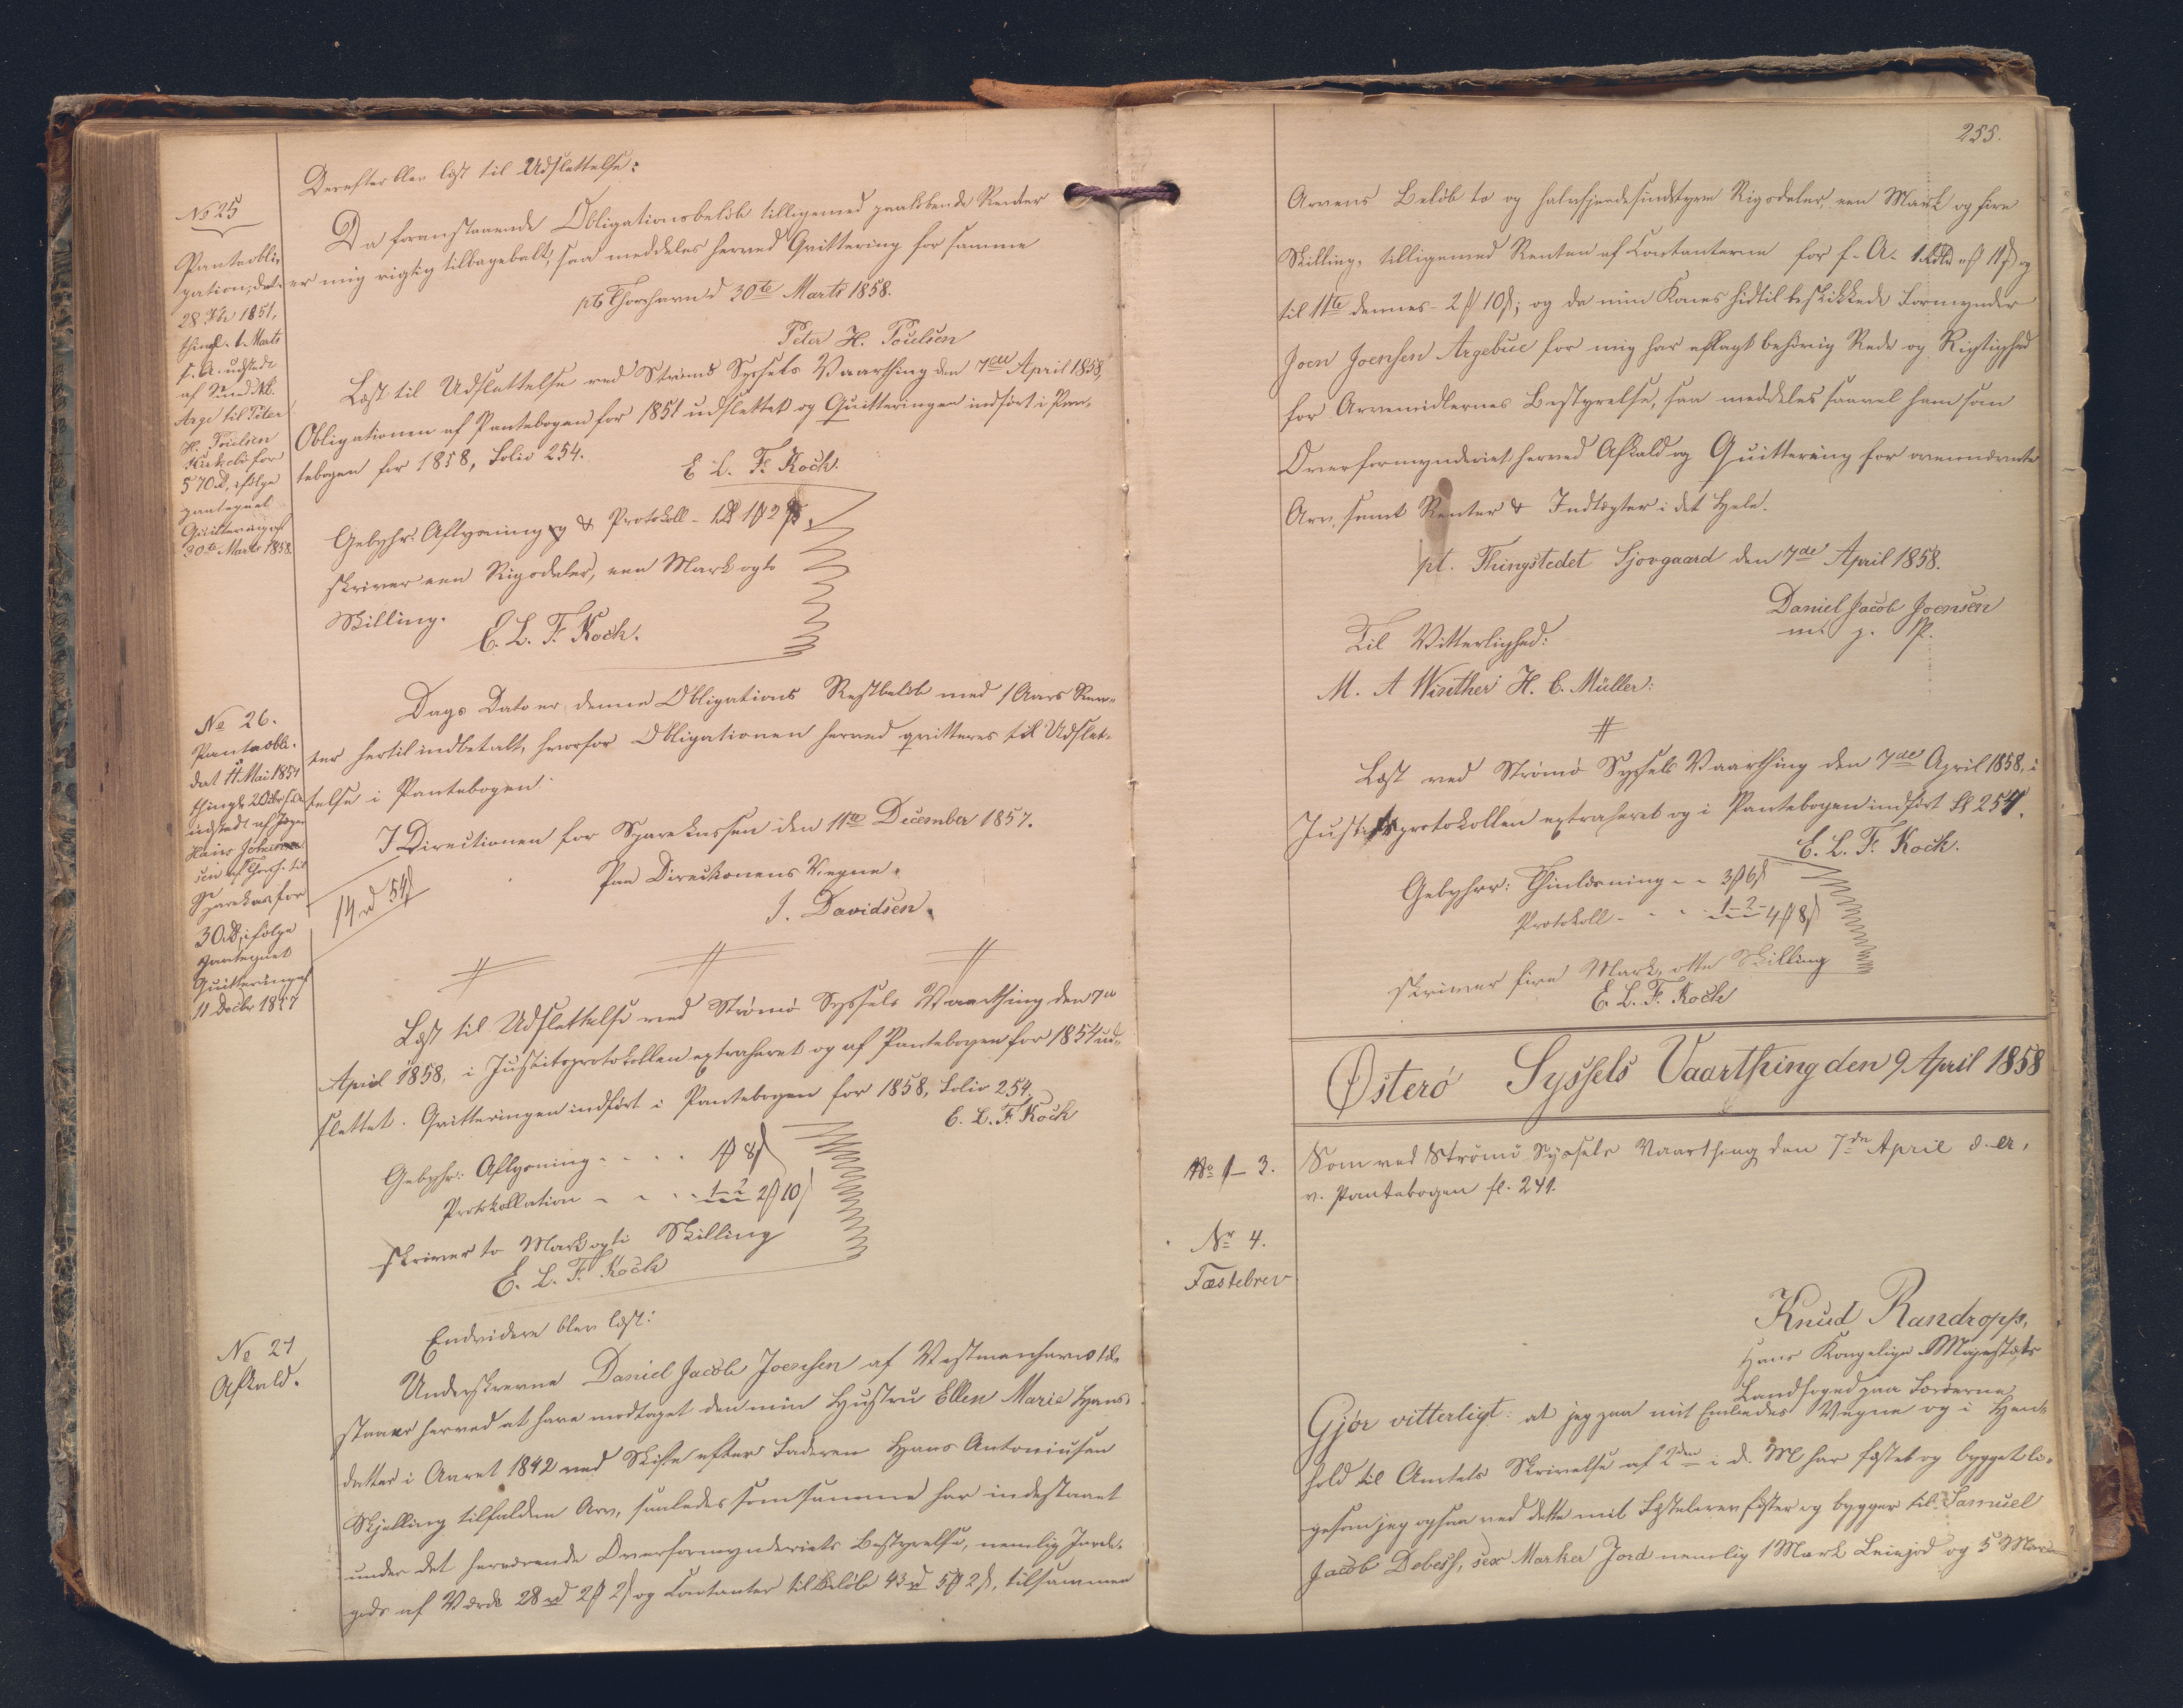 Derefter blev læst til Udslettelse:
No 25
Pantobli-
gation, dat.
28 Fbr 1851,
thingl. 1. Marts
s. A. udstedt
af
Arge til Peter
H. Poulsen
Kirkebö for
570 rd, ifölge
paategnet
Quittering af
30te Marts 1858.
Da foranstaaende Obligationsbelöb tilligemed paalöbende Renter
er mig rigtig tilbagebetalt, saa meddeles herved Qvittering for samme
pt Thorshavn d 30te Marts 1858.
Peter H. Poulsen
Læst til Udslettelse ved Strömö Syssels Vaarthing den 7de April 1858,
Obligationen af Pantebogen for 1851 udslettet og Quitteringen indfört i Pan-
tebogen for 1858, Folio 254.
E. L. F. Koch.
Gebyhr: Aflysning & Protokoll - 1 rd 1 ℳ 2 ß.
skriver een Rigsdaler, een Mark og to
Skilling.
E. L. F. Koch.
No 26.
Panteobli.
dat 11 Mai 1854
thingl. 2 Octbr s. A.
udstedt af Joen
Hans Johanne-
sen af Thorsh. til
Sparekas. for
30 rd, ifölge
paategnet
Quittering af
11 Decbr 1857
Dags Dato er denne Obligations Restbelöb med 1 Aars Ren-
ter hertil indbetalt, hvorfor Obligationen herved qvitteres til Udslet-
telse i Pantebogen.
I Directionen for Sparekassen den 11te December 1857.
Paa Directionens Vegne.
J. Davidsen.
14 rd 54 ß
Læst til Udslettelse ved Strömö Syssels Vaarthing den 7de
April 1858, i Justitsprotokollen extraheret og af Pantebogen for 1854 ud-
slettet. Qvitteringen indfört i Pantebogen for 1858, Folio 254.
E. L. F. Koch
Gebyhr: Aflysning - - - - 1 ℳ 8 ß
Protokollation - - - - 1 - 2 - 2 ℳ 10 ß
skriver to Mark og ti Skilling
E. L. F. Koch
Endvidere blev læst:
No 27
Afkald.
Underskrevne Daniel Jacob Joensen af Vestmanhavn til-
staaer herved at have modtaget den min Hustru Ellen Marie Hans-
datter i Aaret 1842 ved Skifte efter Faderen Hans Antoniusen
Skjelling tilfaldne Arv, saaledes som samme har indestaaet
under det herværende Overformynderiets Bestyrelse, nemlig Jorde-
gods af Værdi 28 rd 2 ℳ 2 ß og Contanter til Belöb 43 rd 5 ℳ 2 ß, tilsammen
255.
Arvens Belöb to og halvfjerdesindstyve Rigsdaler, een Mark og fire
Skilling, tilligemed Renten af Contanterne for f. A. 1 rd 4 ℳ 11 ß og
til 11te dennes - 2 ℳ 10 ß; og da min Kones hidtil beskikkede Formynder
Joen Joensen Argebue for mig har aflagt behörig Rede og Rigtighed
for Arvemidlernes Bestyrelse, saa meddeles saavel ham som
Overformynderiet herved Afkald og Quittering for ovennævnte
Arv, samt Renter & Indtægter i det Hele.
pt. Thingstedet Sjovgaard den 7de April 1858.
Daniel Jacob Joensen
m. p. P.
Til Vitterlighed:
M. A Winther H. C. Müller:
Læst ved Strömö Syssels Vaarthing den 7de April 1858, i
Justitsprotokollen extraheret og i Pantebogen indfört Fl 254.
E. L. F. Koch.
Gebyhr: Thinlæsning - - 3 ℳ 6 ß
Protokoll - - - 1 - 2 - 4 ℳ 8 ß
skriver fire Mark, otte Skilling
E. L. F. Koch
Österö Syssels Vaarthing den 9 April 1858
No 1-3.
Som ved Strömö Syssels Vaarthing den 7de April d. A.,
v. Pantebogen fl. 241.
Nr 4.
Fæstebrev
Knud Randropp,
Hans Kongelige Majestæts
Landfoged paa Færöerne
Gjör vitterligt: at jeg paa mit Embedes Vegne og i Hen-
hold til Amtets Skrivelse af 2den i d. M har fæstet og bygget li-
gesom jeg ogsaa ved dette mit Fæstebrev fæster og bygger til Samuel
Jacob Debess, sex Marker Jord nemlig 1 Mark Leiejord og 5 Mar-